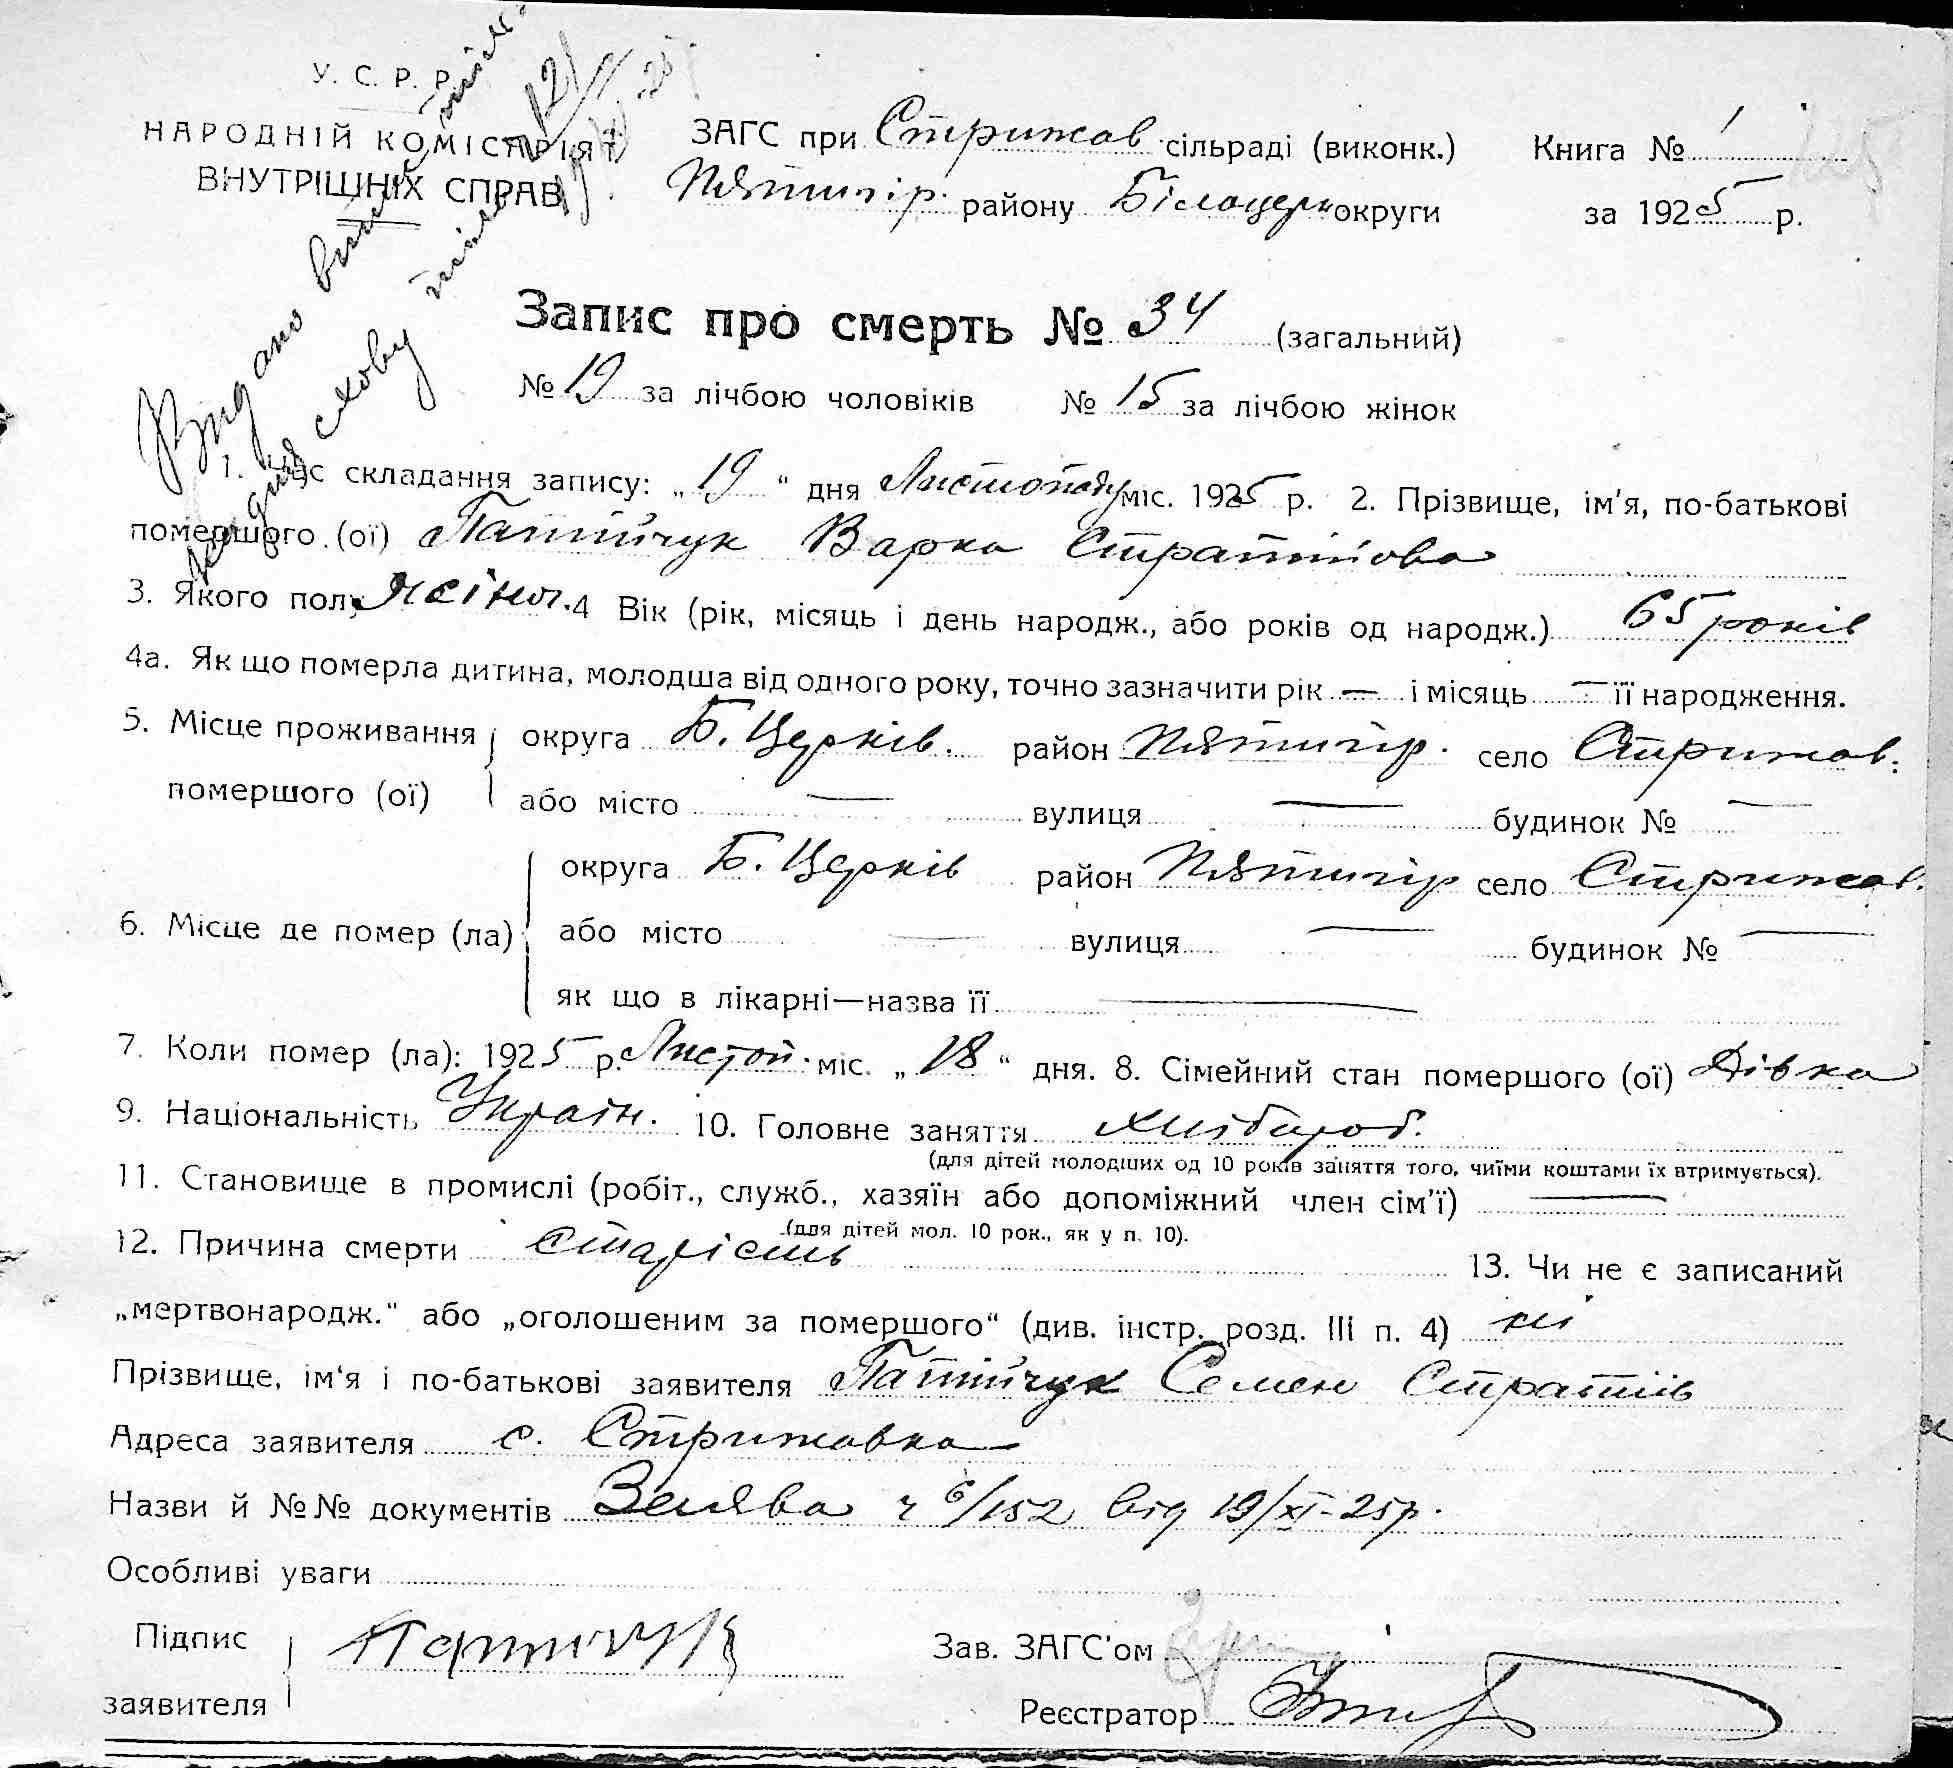 У. С. Р. Р.
НАРОДНІЙ КОМІСАРІЯТ
ВНУТРІШНІХ СПРАВ
ЗАГС при Стрижав сільраді (виконк.)
Пятигір. району Білоцерк округи
Книга № 1
за 1925 р.
Видано
Запис про смерть № 34 (загальний)
№ 19 за лічбою чоловіків № 15 за лічбою жінок
1. Час складання запису: „19“ дня Листопаду міс. 1925 р. 2. Прізвище, ім'я, по-батькові
помершого (ої) Патійчук Варка Стратіїова
3. Якого полу жіноч. 4 Вік (рік, місяць і день народж., або років од народж.) 65 років
4а. Як що померла дитина, молодша від одного року, точно зазначити рік — і місяць — її народження.
5. Місце проживання округа Б. Церків. район Пятигір. село Стрижав.
помершого (ої) або місто — вулиця — будинок № —
округа Б. Церків район Пятигір село Стрижав.
6. Місце де помер (ла) або місто — вулиця — будинок № —
як що в лікарні—назва її —
7. Коли помер (ла): 1925 р. Листоп. міс. „18“ дня. 8. Сімейний стан помершого (ої) Дівка
9. Національність Україн. 10. Головне заняття хлібороб.
(для дітей молодших од 10 років заняття того, чиїми коштами їх втримується).
11. Становище в промислі (робіт., служб., хазяїн або допоміжний член сім'ї) —
(для дітей мол. 10 рок., як у п. 10).
12. Причина смерти старість 13. Чи не є записаний
„мертвонародж.“ або „оголошеним за помершого“ (див. інстр. розд. III п. 4) ні
Прізвище, ім'я і по-батькові заявителя Патійчук Семен Стратіїв
Адреса заявителя с. Стрижавка
Назви й №№ документів Заява ч 6/152 від 19/XI-25р.
Особливі уваги
Підпис
заявителя
Зав. ЗАГС'ом
Реєстратор